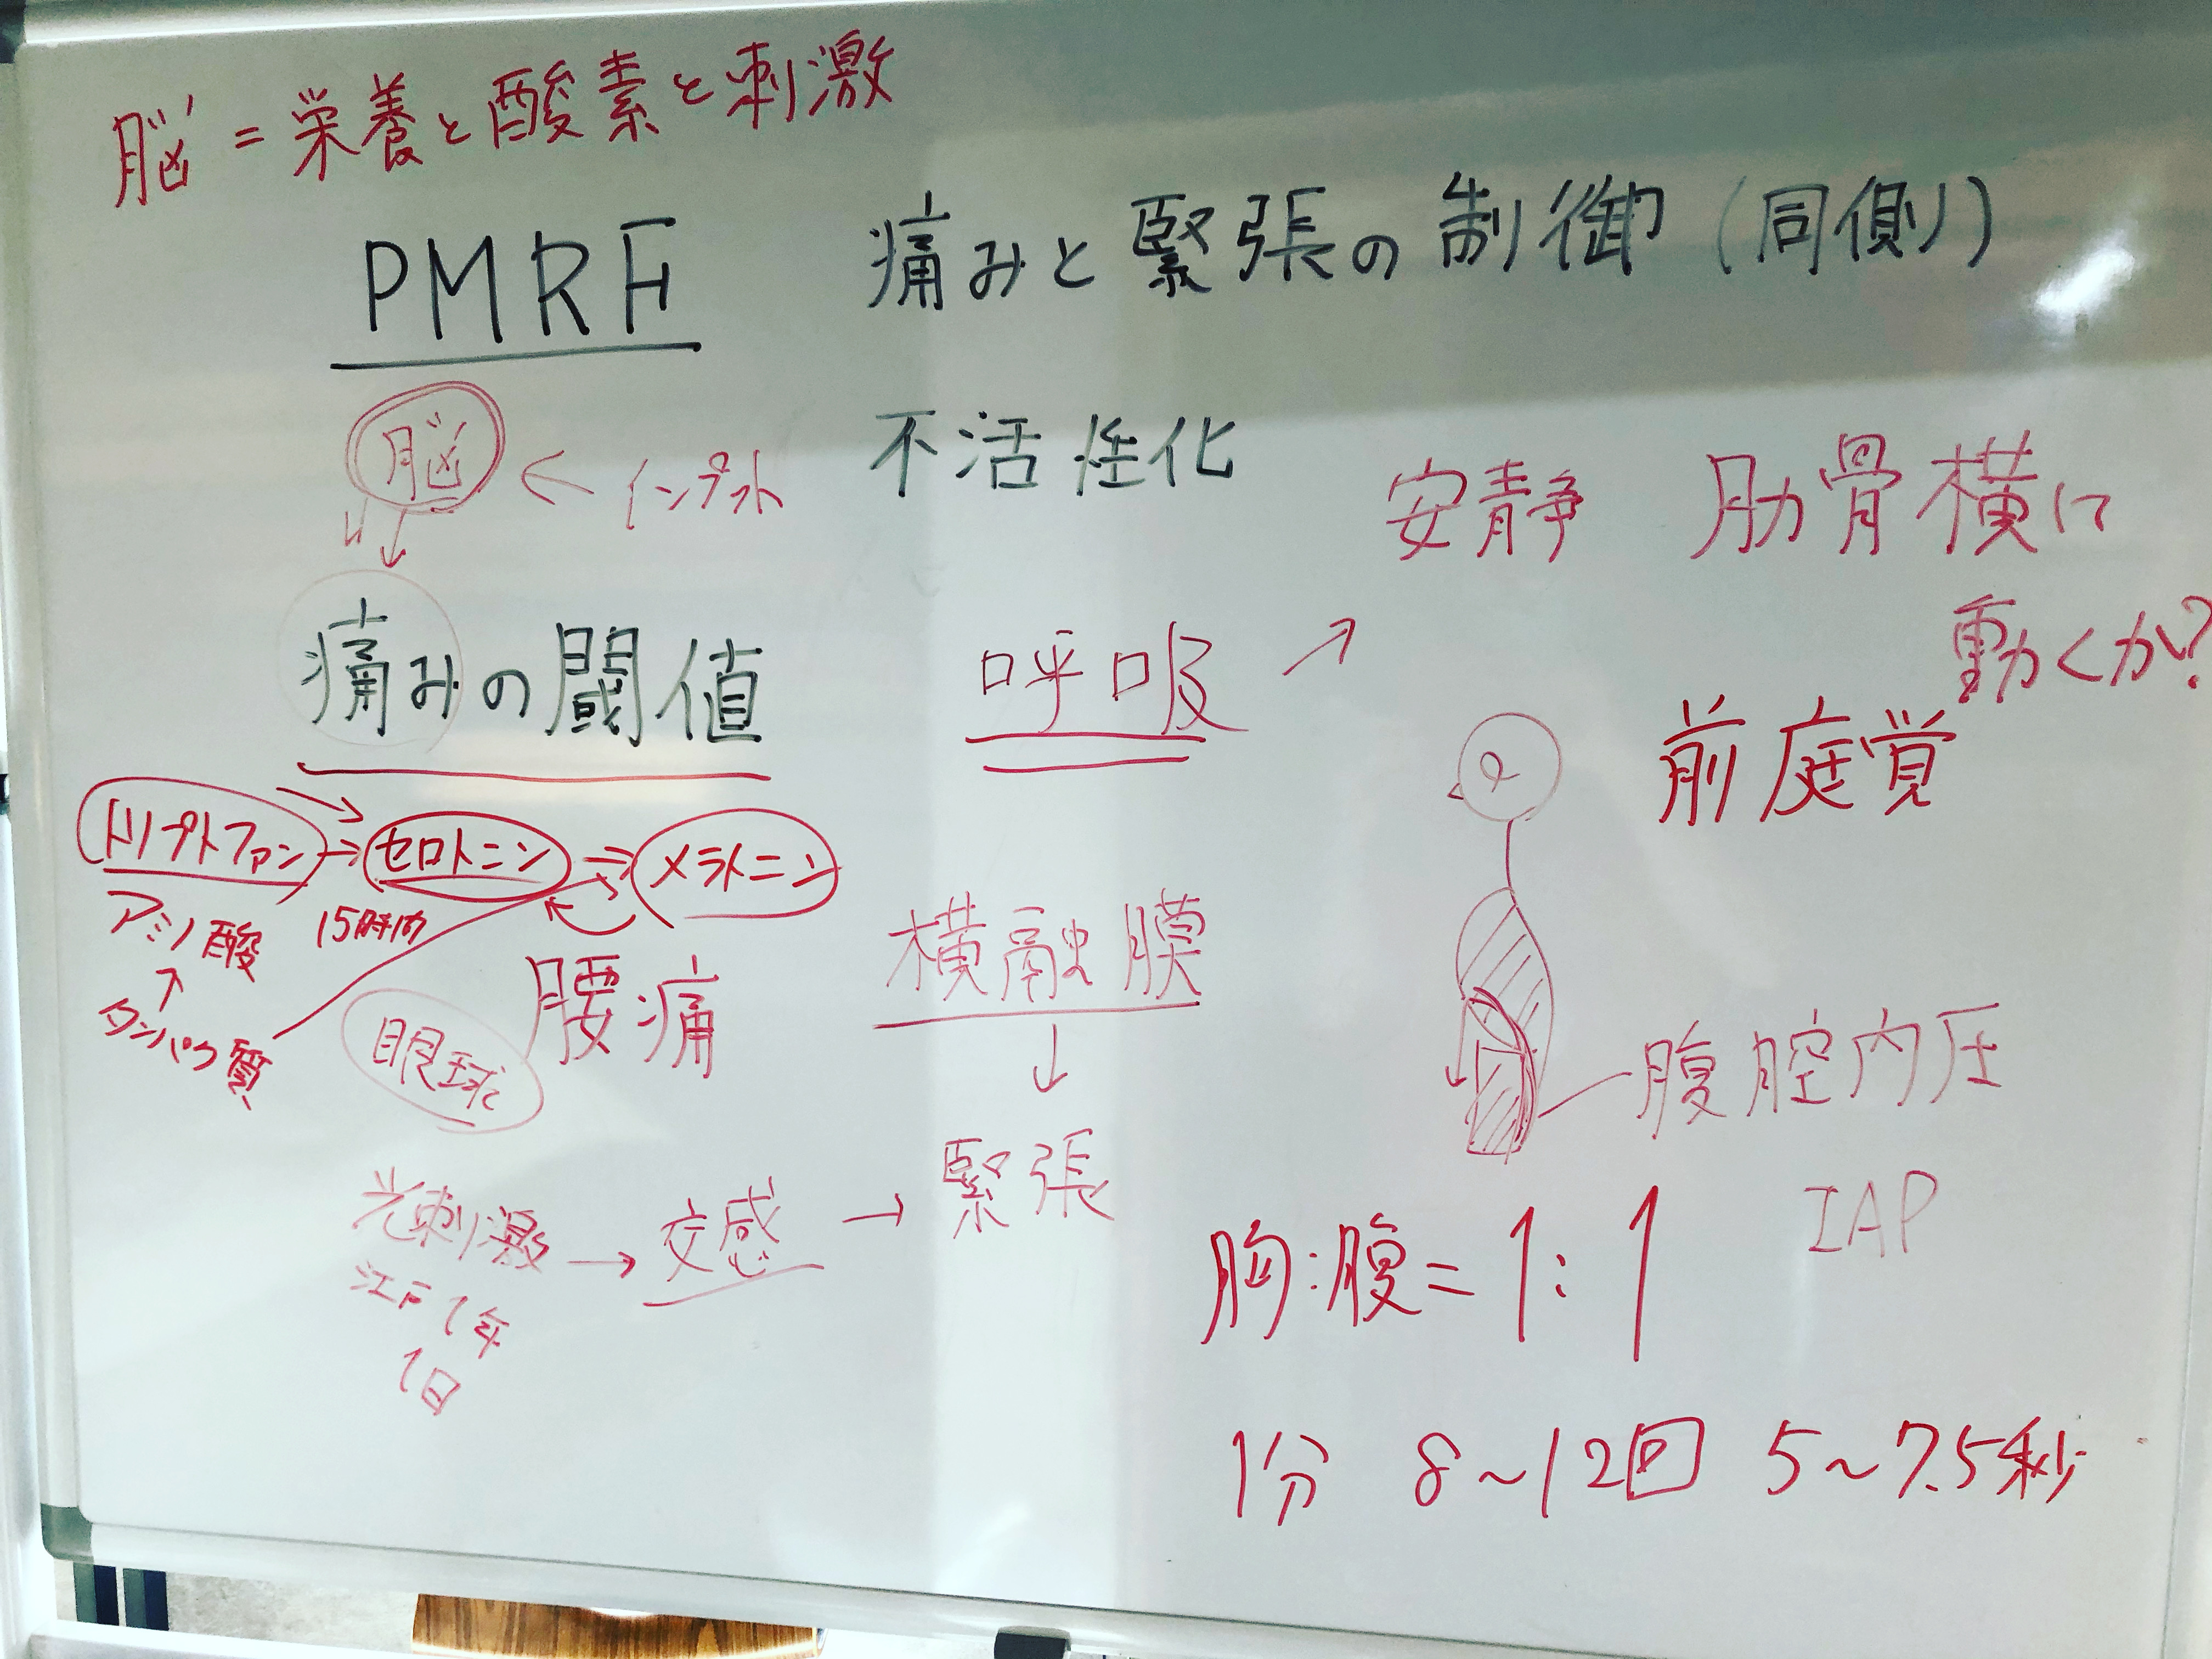 脳=栄養と酸素と刺激
PMRF 痛みと緊張の制御(同側)
脳 ← インプット 不活性化
安静 肋骨横に
動くか?
痛みの閾値
呼吸 →
前庭覚
トリプトファン → セロトニン → メラトニン
アミノ酸 15時間
↑
タンパク質
腰痛
眼球
横融膜
↓
腹腔内圧
IAP
光刺激 → 交感 → 緊張
江戸1年
1日
胸:腹=1:1
1分 8~12回 5~7.5秒